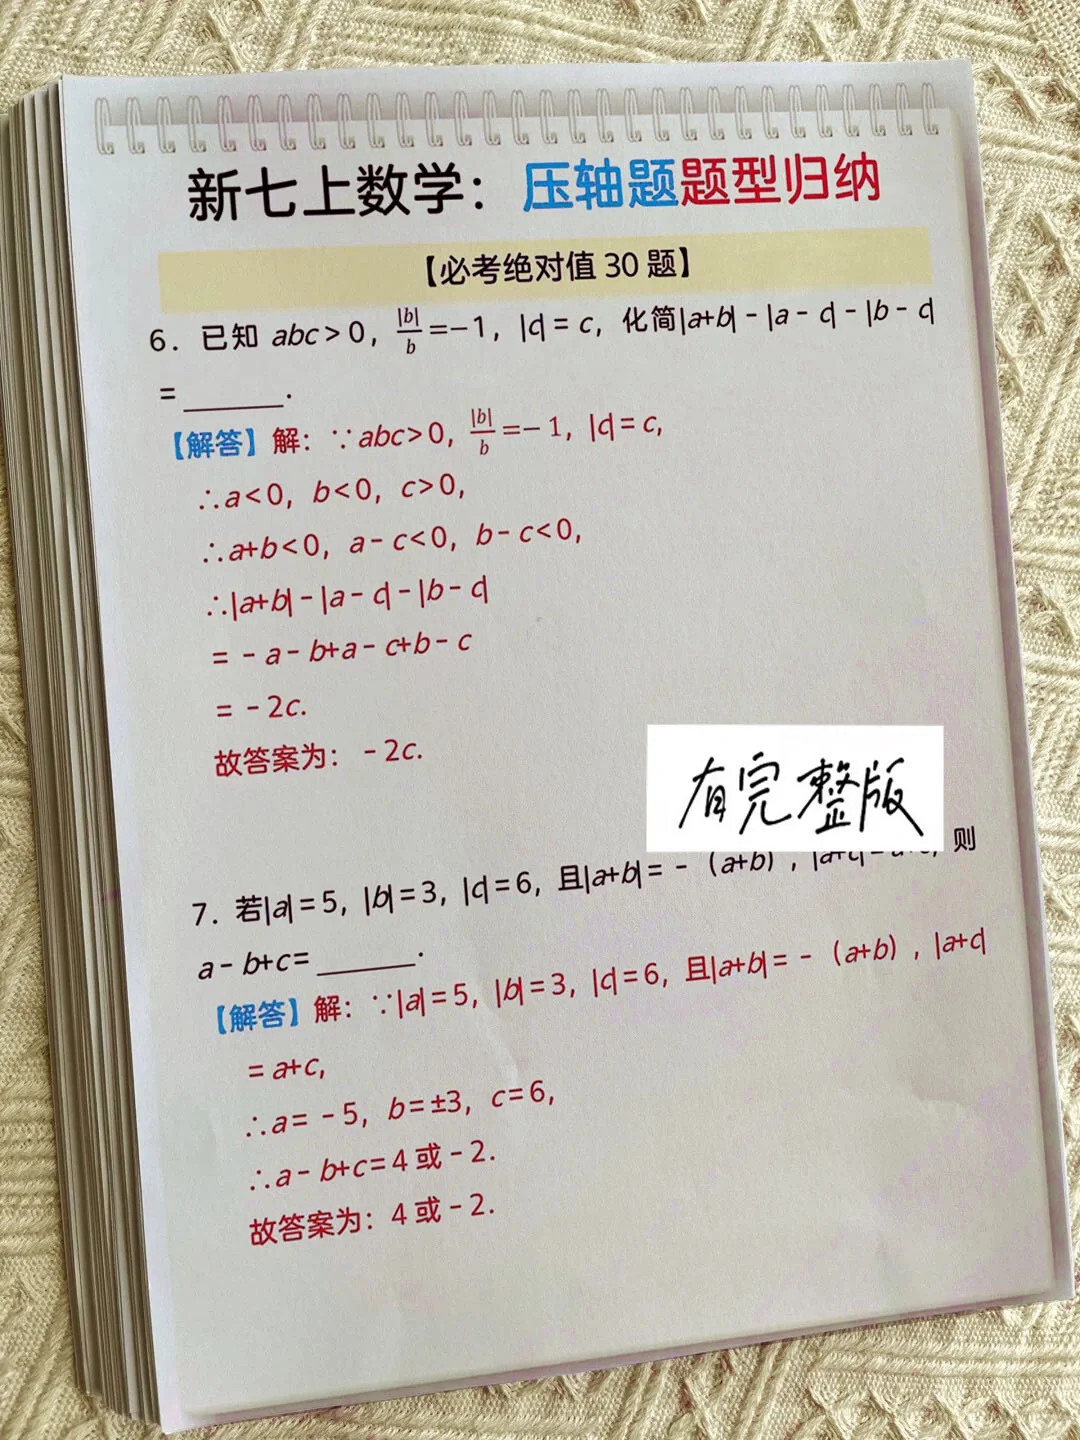 新七上数学：压轴题题型归纳
【必考绝对值 30 题】
6．已知 abc＞0，|b|/b=−1，|c|=c，化简|a+b|−|a−c|−|b−c|
=______．
【解答】解：∵abc＞0，|b|/b=−1，|c|=c，
∴a＜0，b＜0，c＞0，
∴a+b＜0，a−c＜0，b−c＜0，
∴|a+b|−|a−c|−|b−c|
=−a−b+a−c+b−c
=−2c．
故答案为：−2c．
有完整版
7．若|a|=5，|b|=3，|c|=6，且|a+b|=−（a+b），|a+c|=a+c，则
a−b+c=______．
【解答】解：∵|a|=5，|b|=3，|c|=6，且|a+b|=−（a+b），|a+c|
=a+c，
∴a=−5，b=±3，c=6，
∴a−b+c=4 或−2．
故答案为：4 或−2．